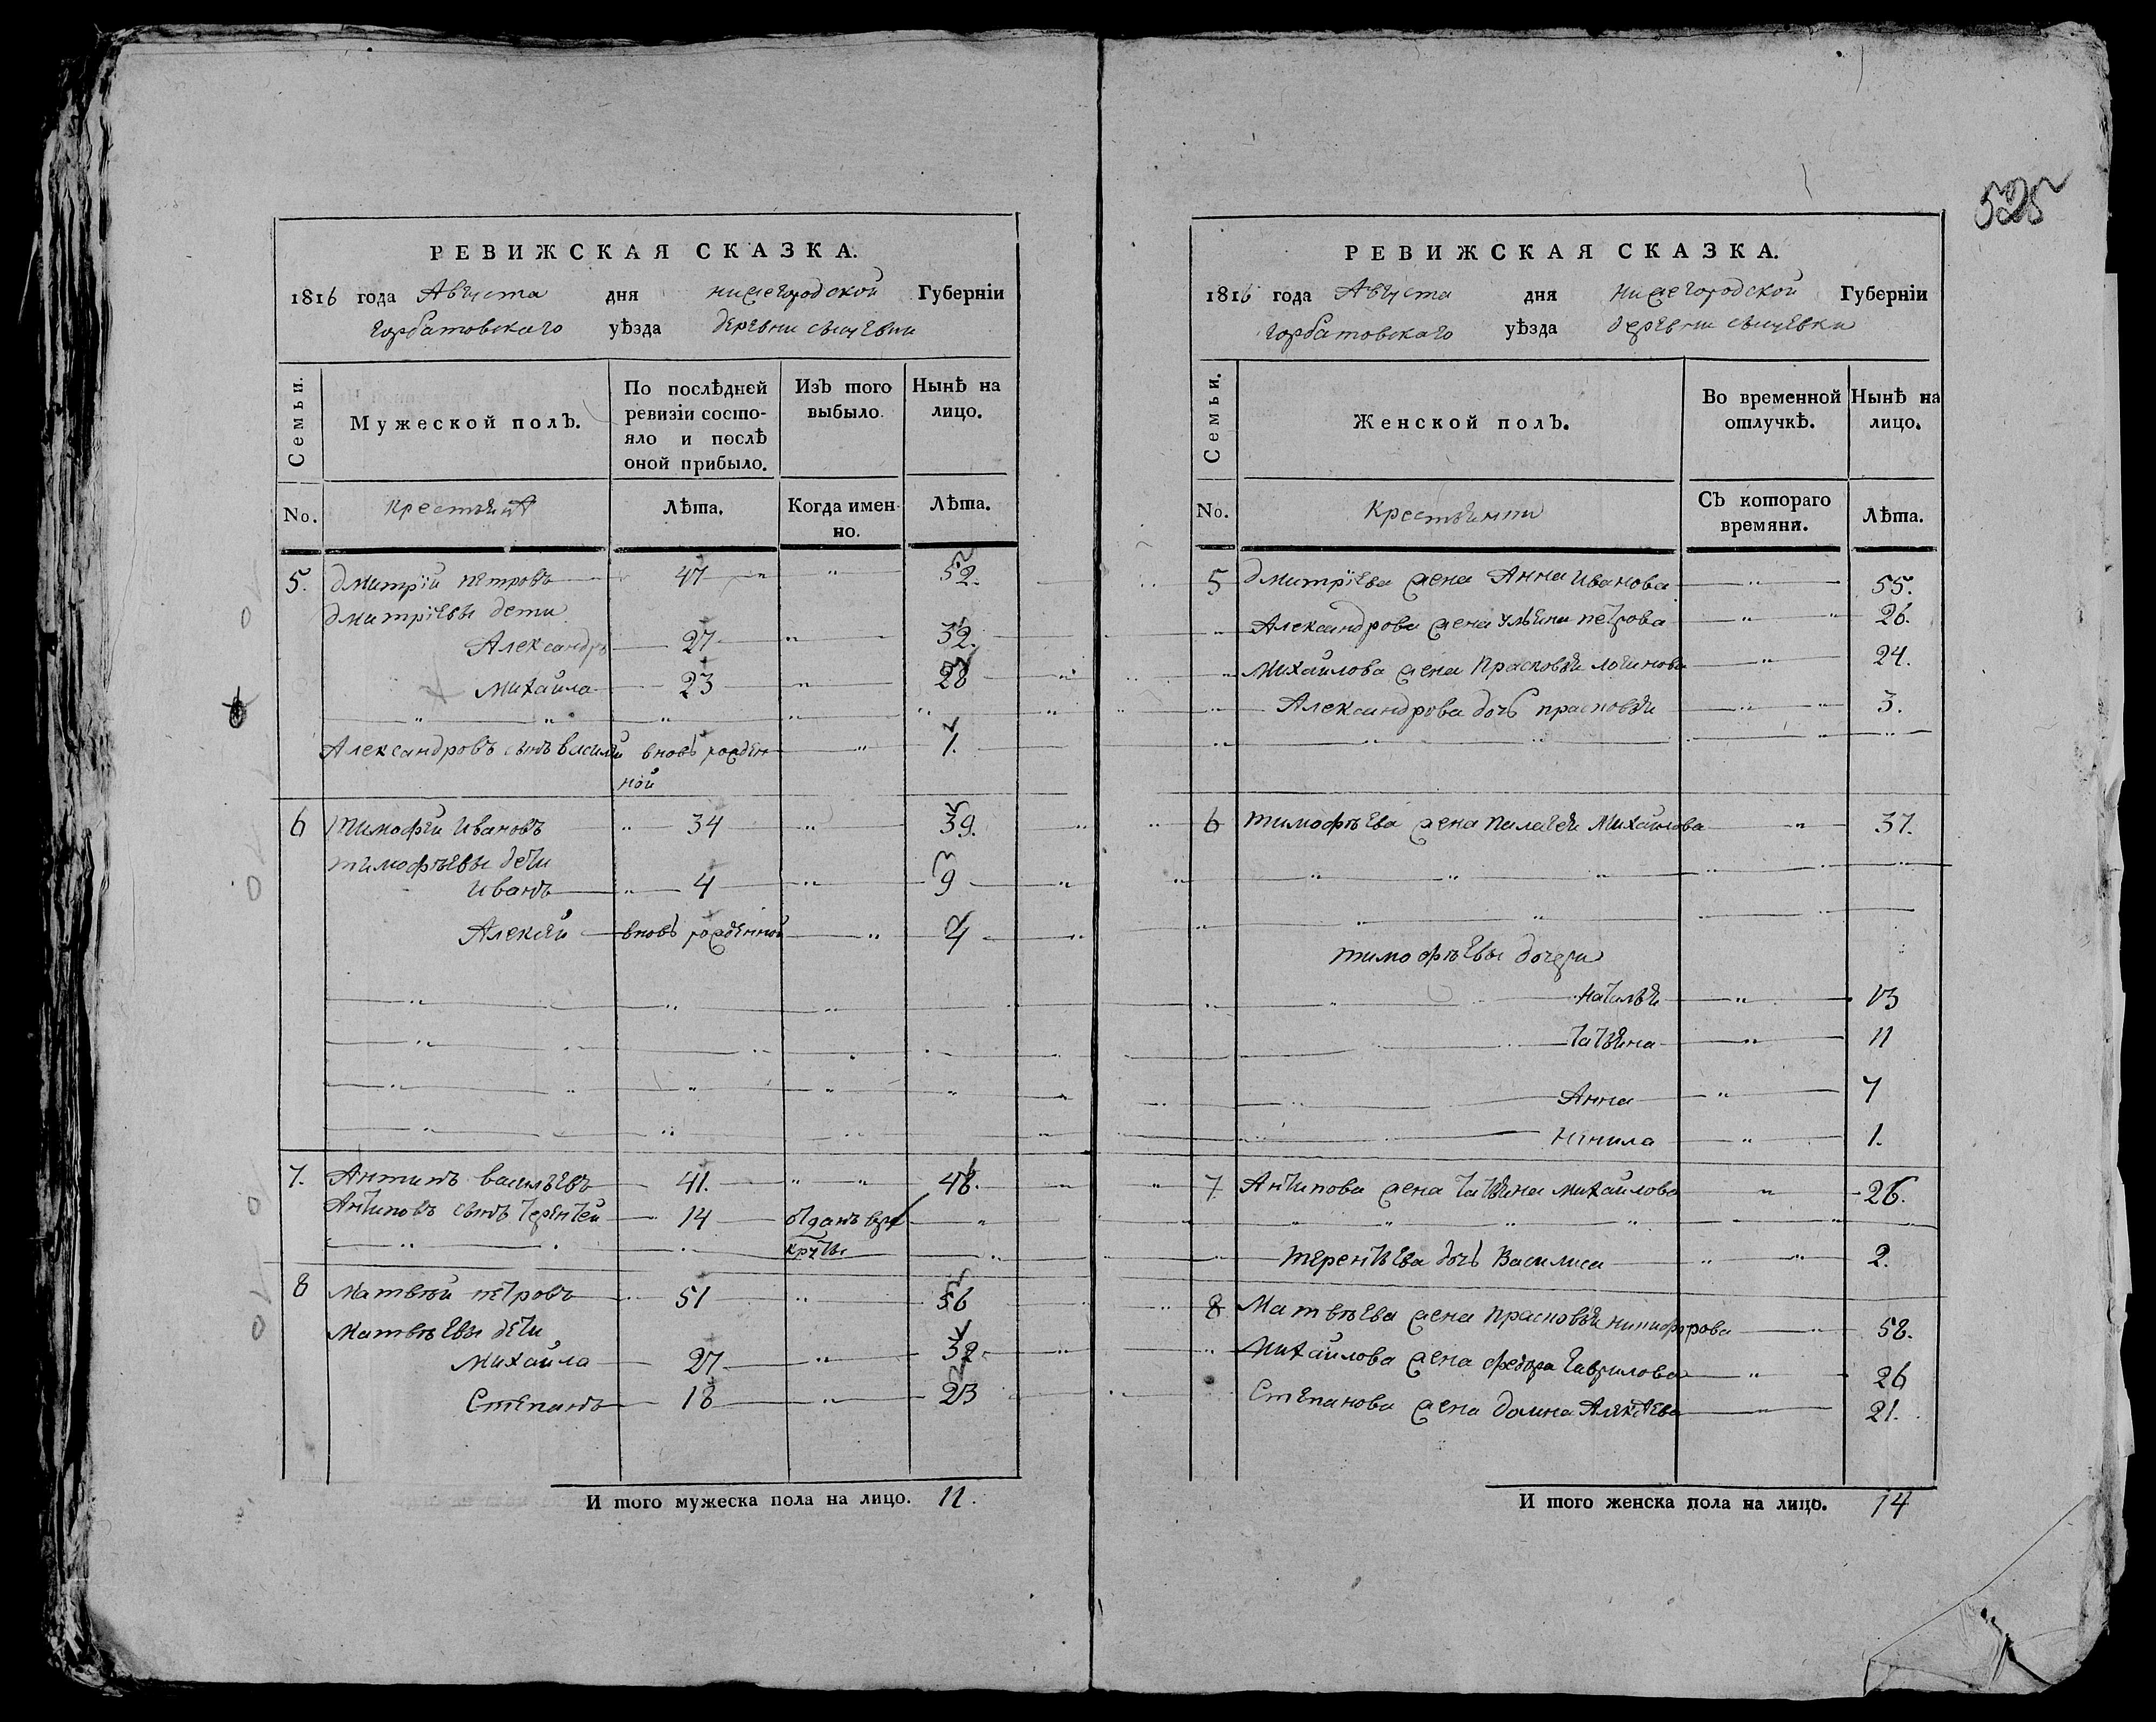 525
РЕВИЖСКАЯ СКАЗКА.
1816 года Августа дня нижегородской Губерніи
горбатовскаго уѣзда деревни
Семьи.
Мужеской полъ.
По послѣдней ревизіи состояло и послѣ оной прибыло.
Изъ того выбыло.
Нынѣ на лицо.
No.
Крестьянѣ
Лѣта.
Когда именно.
Лѣта.
5. дмитрій петровъ 47 52.
дмитріевы дети
Александръ 27 32.
Михаила 23 28
Александровъ сынъ василій вновь рожденной 1.
6 тимофѣй Ивановъ 34 39.
тимофѣевы дети
иванъ 4 9
Алексѣй вновь рожденной 4
7. Антипъ васильевъ 41. 46.
Антиповъ сынъ терентей 14 отданъ в рекруты
8 Матвѣй петровъ 51 56
Матвѣевы дети
Михаила 27 32
Степанъ 18 23
И того мужеска пола на лицо. 11.
РЕВИЖСКАЯ СКАЗКА.
1816 года Августа дня нижегородской Губерніи
горбатовскаго уѣзда деревни
Семьи.
Женской полъ.
Во временной отлучкѣ.
Нынѣ на лицо.
No.
Крестьянки
Съ котораго времяни.
Лѣта.
5 дмитріева жена Анна Иванова 55.
Александрова жена ульяна петрова 26.
Михаилова жена Прасковья логинова 24.
Александрова дочь прасковья 3.
6 тимофѣева жена пилагея Михаилова 37.
тимофѣевы дочери
наталья 13
татьяна 11
Анна 7
Ненила 1.
7 Антипова жена татьяна михаилова 26.
терентьева дочь Василиса 2.
8 Матвѣева жена прасковья никифорова 58.
Михаилова жена федора гаврилова 26
Степанова жена домна Алексѣева 21.
И того женска пола на лицо. 14